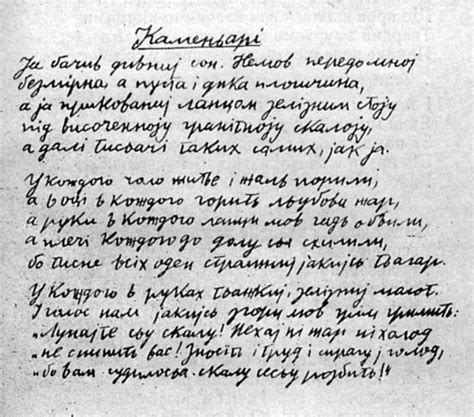 Каменьарі
Ја бачив дивниј сон. Немов передомној
безмірна, а пуста і дика плошчина,
а ја прикованиј ланцом зелізним стоју
під височенноју гранітноју скалоју,
а далі тисьачі таких самих, јак ја.
У кождого чоло житьє і жаль порили,
а в очі в кождого горить льубови жар,
а руки в кождого ланци мов гадь обвили,
а плечі кождого до долу сьа схилили,
бо тисне всіх оден страшниј јакијсь тьагар.
У кождого в руках тьажкиј, зелізниј молот.
І голос нам јакијсь згори мов грім гримить:
„Лупајте сьу скалу! Нехај ні жар ні холод
„не спинить вас! Зносіть і труд і спрагу ј голод,
„бо вам судилосьа скалу сесьу розбить!"